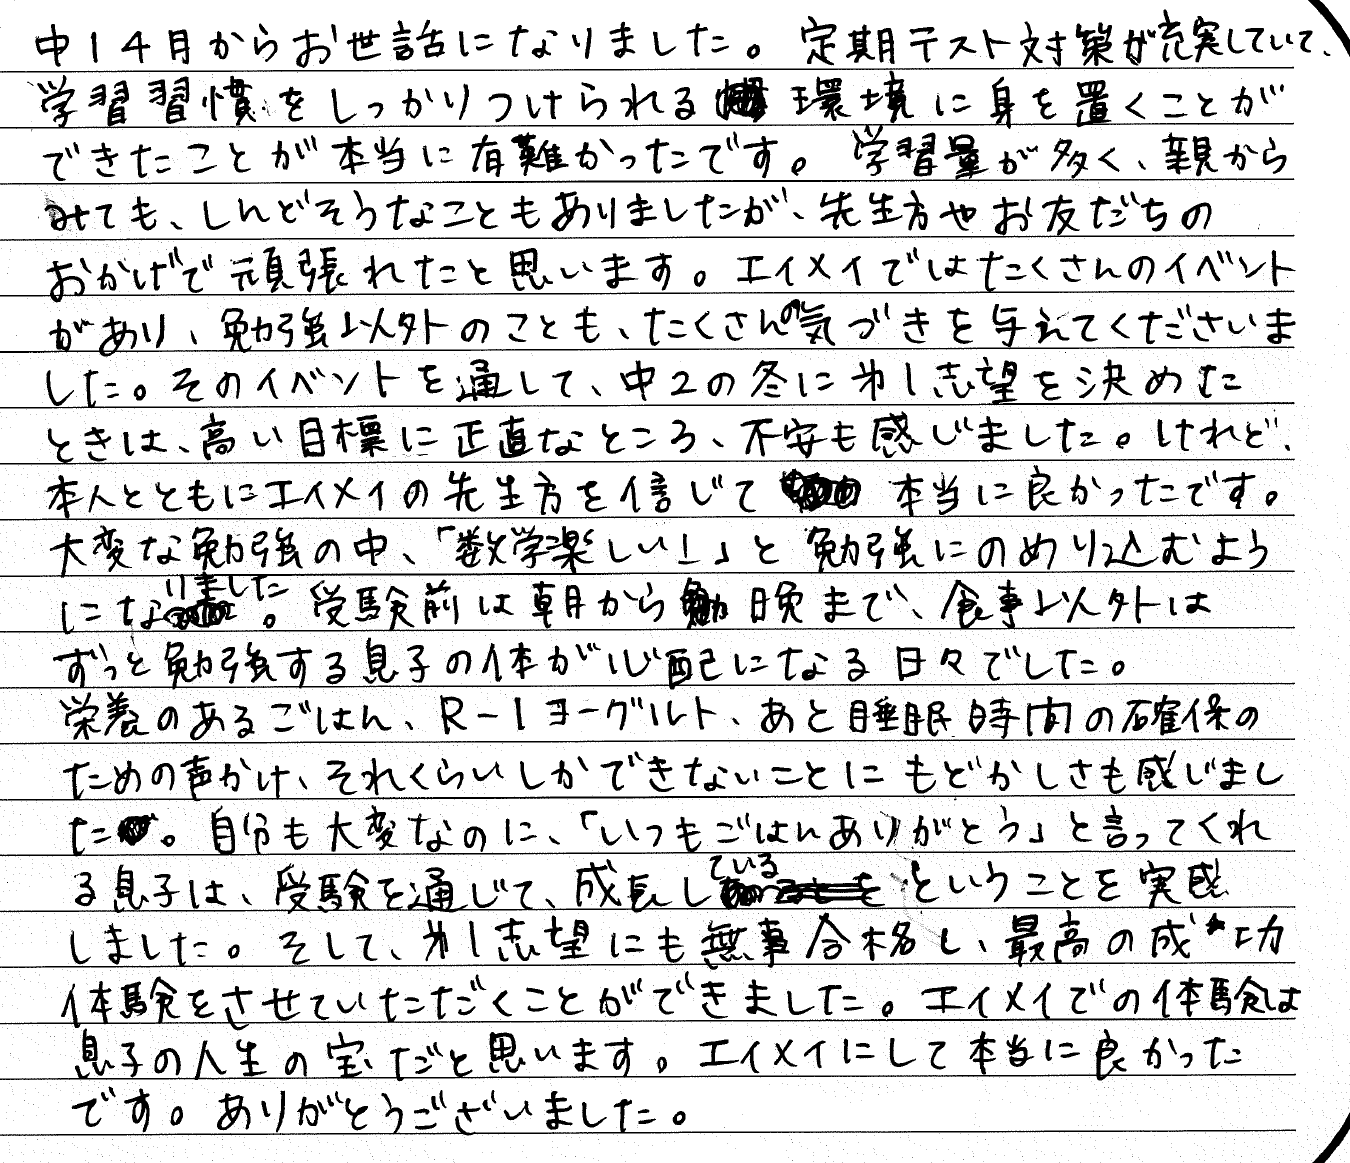 中1 4月からお世話になりました。定期テスト対策が充実していて、
学習習慣をしっかりつけられる環境に身を置くことが
できたことが本当に有難かったです。学習量が多く、親から
みても、しんどそうなこともありましたが、先生方やお友だちの
おかげで頑張れたと思います。エイメイではたくさんのイベント
があり、勉強以外のことも、たくさんの気づきを与えてくださいま
した。そのイベントを通して、中2の冬に㐧1志望を決めた
ときは、高い目標に正直なところ、不安も感じました。けれど、
本人とともにエイメイの先生方を信じて本当に良かったです。
大変な勉強の中、「数学楽しい!」と勉強にのめり込むよう
になりました。受験前は朝から晩まで、食事以外は
ずっと勉強する息子の体が心配になる日々でした。
栄養のあるごはん、R-1ヨーグルト、あと睡眠時間の確保の
ための声かけ、それくらいしかできないことにもどかしさも感じまし
た。自分も大変なのに、「いつもごはんありがとう」と言ってくれ
る息子は、受験を通じて、成長しているということを実感
しました。そして、㐧1志望にも無事合格し、最高の成功
体験をさせていただくことができました。エイメイでの体験は
息子の人生の宝だと思います。エイメイにして本当に良かった
です。ありがとうございました。